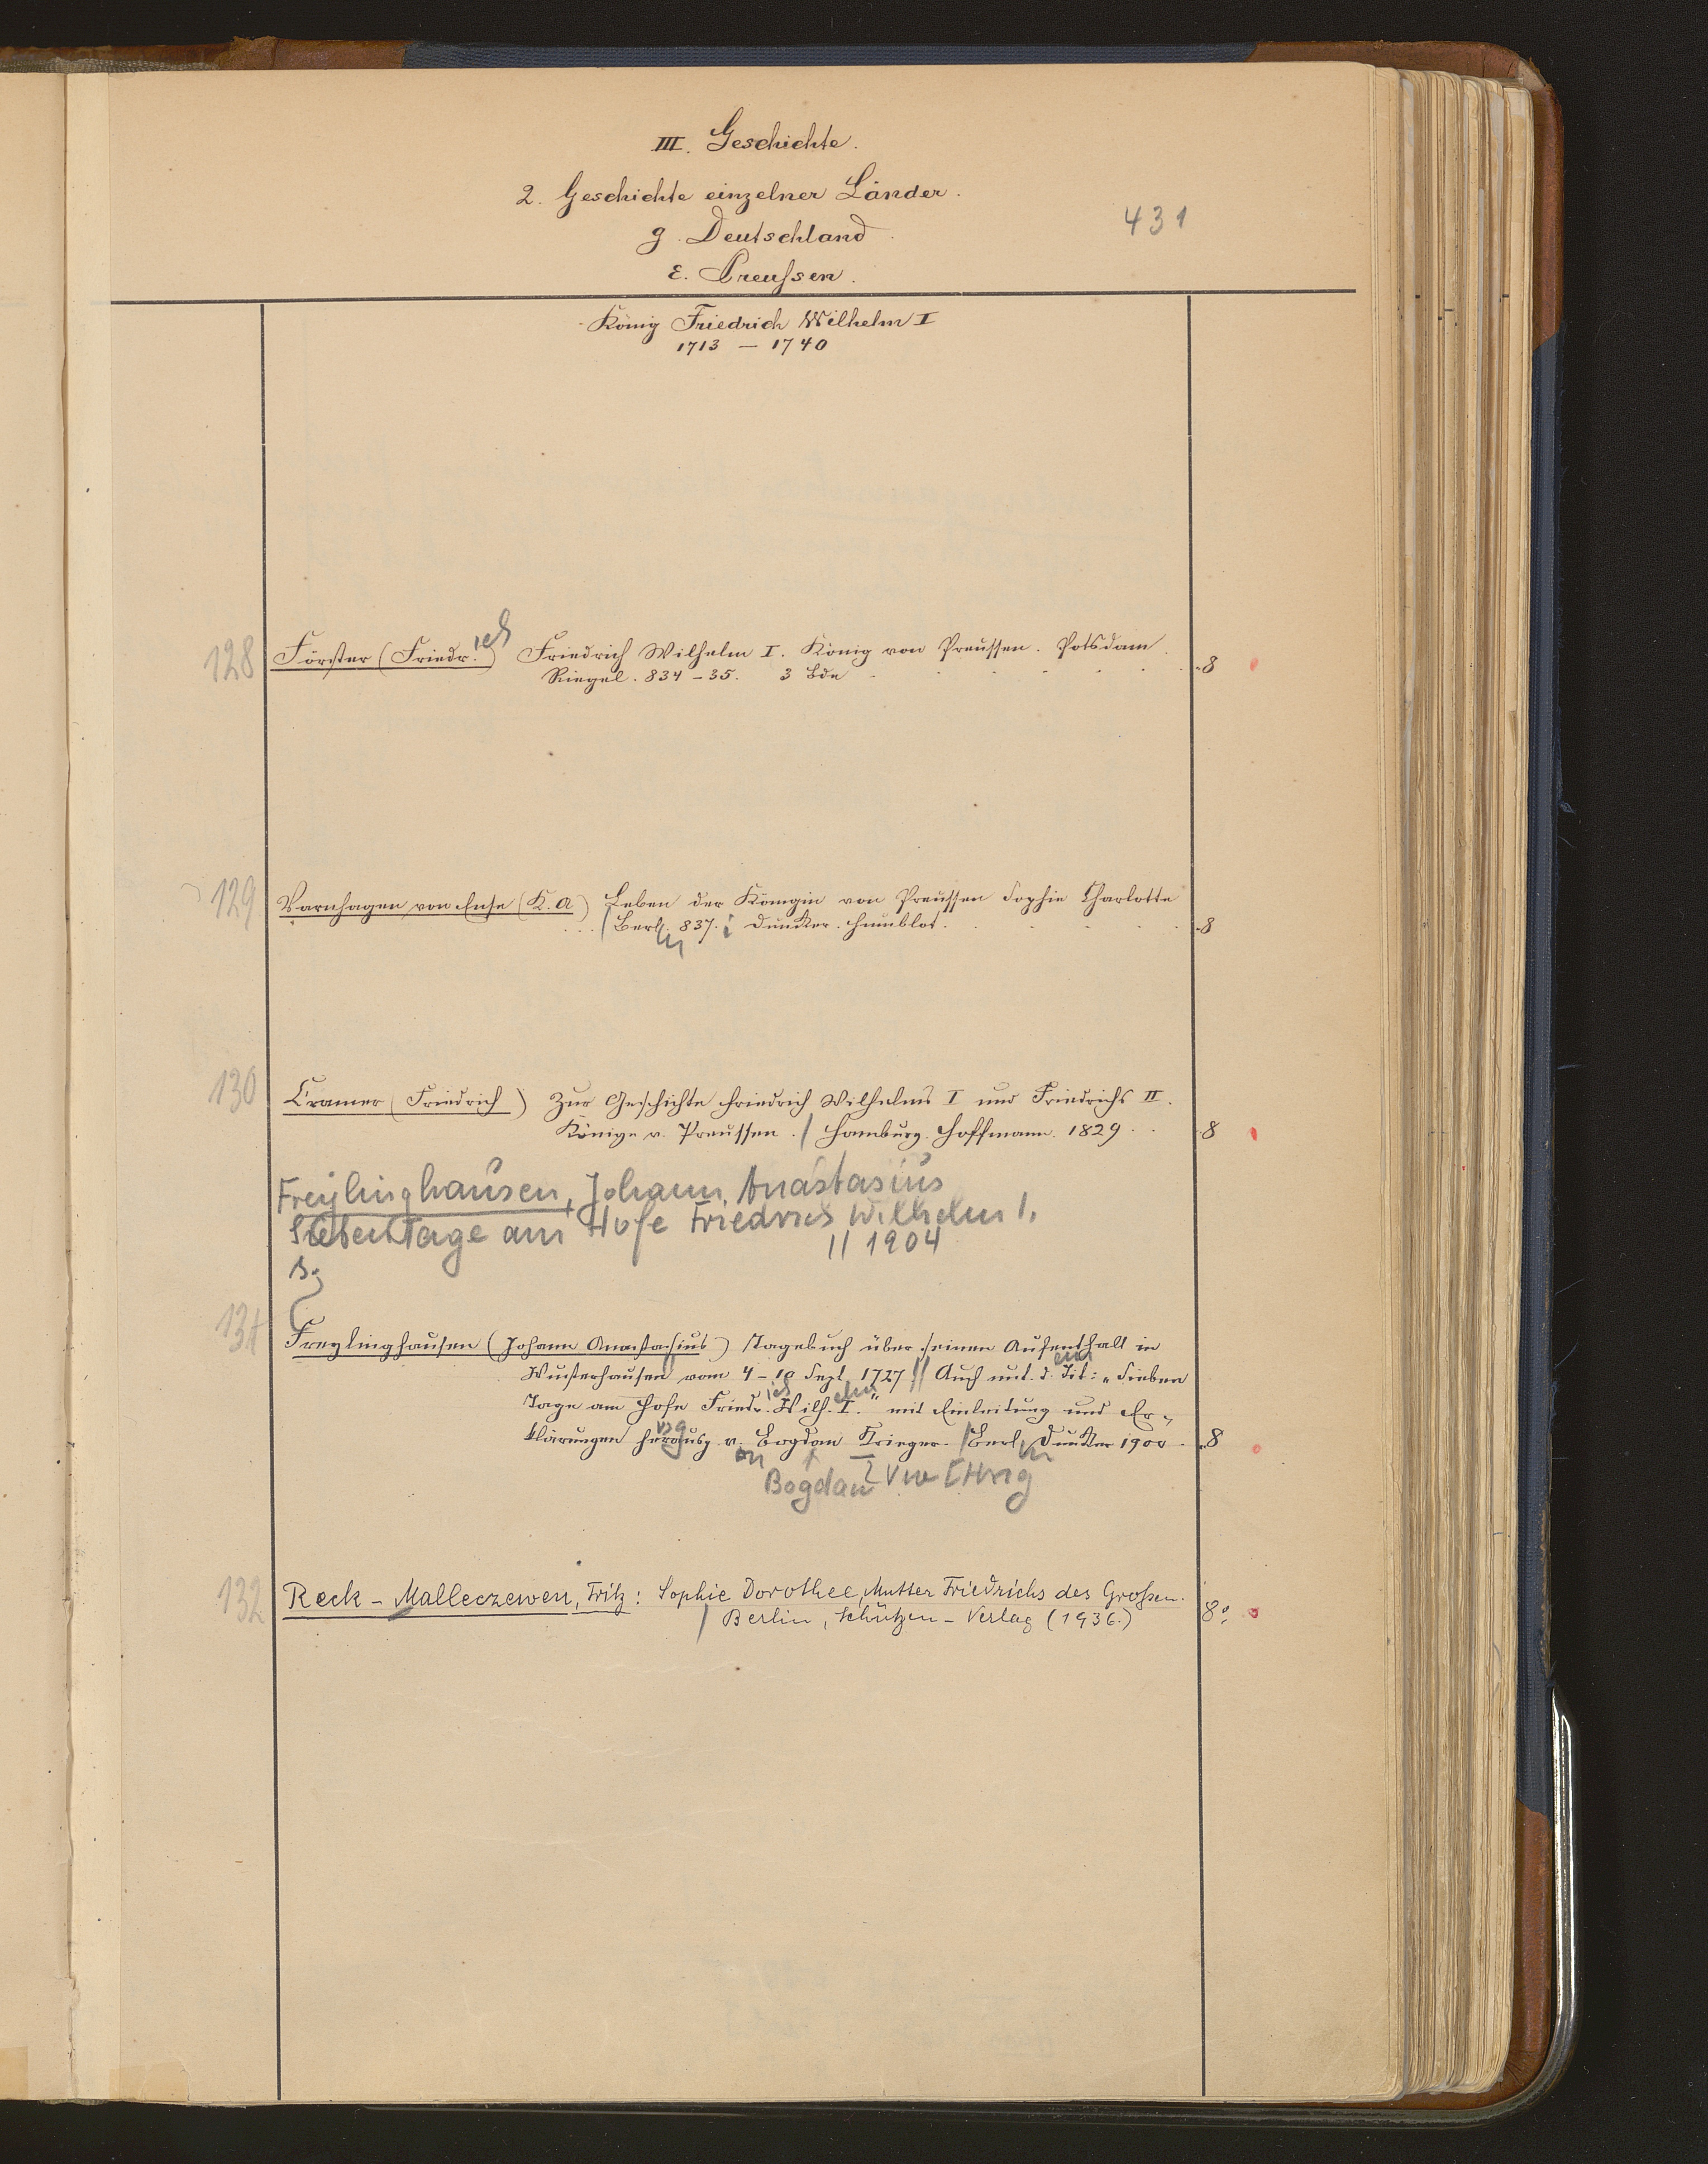 III. Geschichte.
2. Geschichte einzelner Länder.
431
g. Deutschland
ε. Preußen.
König Friedrich Wilhelm I
1713 — 1740
128 Förster (Friedr.ich) Friedrich Wilhelm I. König von Preussen. Potsdam.
Riegel. 834 – 35. 3 Bde 8
129 Varnhagen von Ense (K. A) Leben der Königin von Preussen Sophie Charlotte
/ Berl.in 837. Duncker. Humblot. 8
130 Cramer (Friedrich) Zur Geschichte Friedrich Wilhelms I und Friedrichs II.
Könige v. Preussen. / Hamburg. Hoffmann. 1829. 8
Freylinghausen, Johann Anastasius
Sieben Tage am Hofe Friedrich Wilhelm I.
// 1904
131 Freylinghausen (Johann Anastasius) Tagebuch über seinen Aufenthalt in
Wusterhausen vom 4 – 10 Sept 1727 // Auch unt. d. Tit: „Sieben
Tage am Hofe Friedr.ich Wilh.elm I." mit Einleitung und Er-
klärungen herausg v. Bogdan Krieger. / Berl.in Duncker 1900. 8
Bogdan
132 Reck – Malleczewen, Fritz: Sophie Dorothee, Mutter Friedrichs des Großen.
/ Berlin, Schützen – Verlag (1936.) 8°